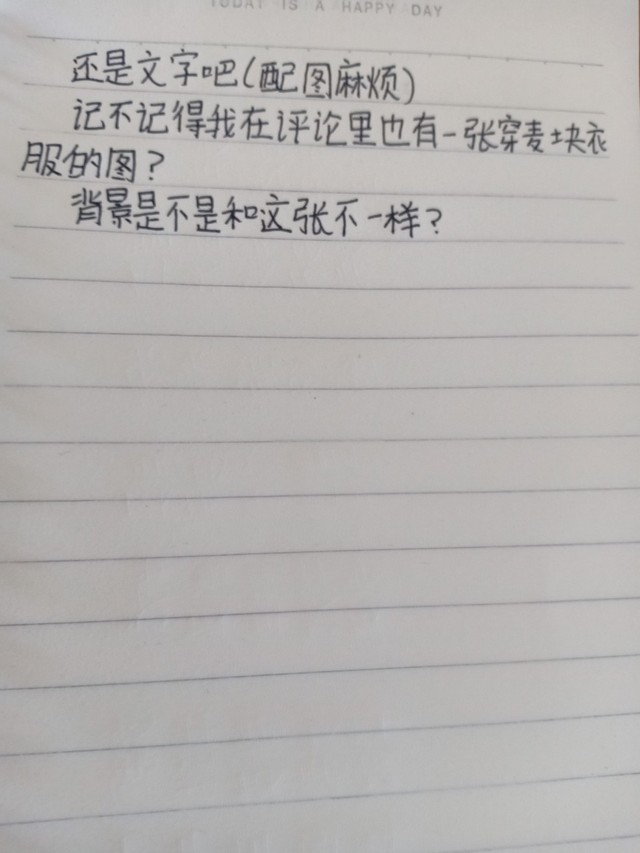 TODAY IS A HAPPY DAY
还是文字吧(配图麻烦)
记不记得我在评论里也有一张穿麦块衣
服的图?
背景是不是和这张不一样?